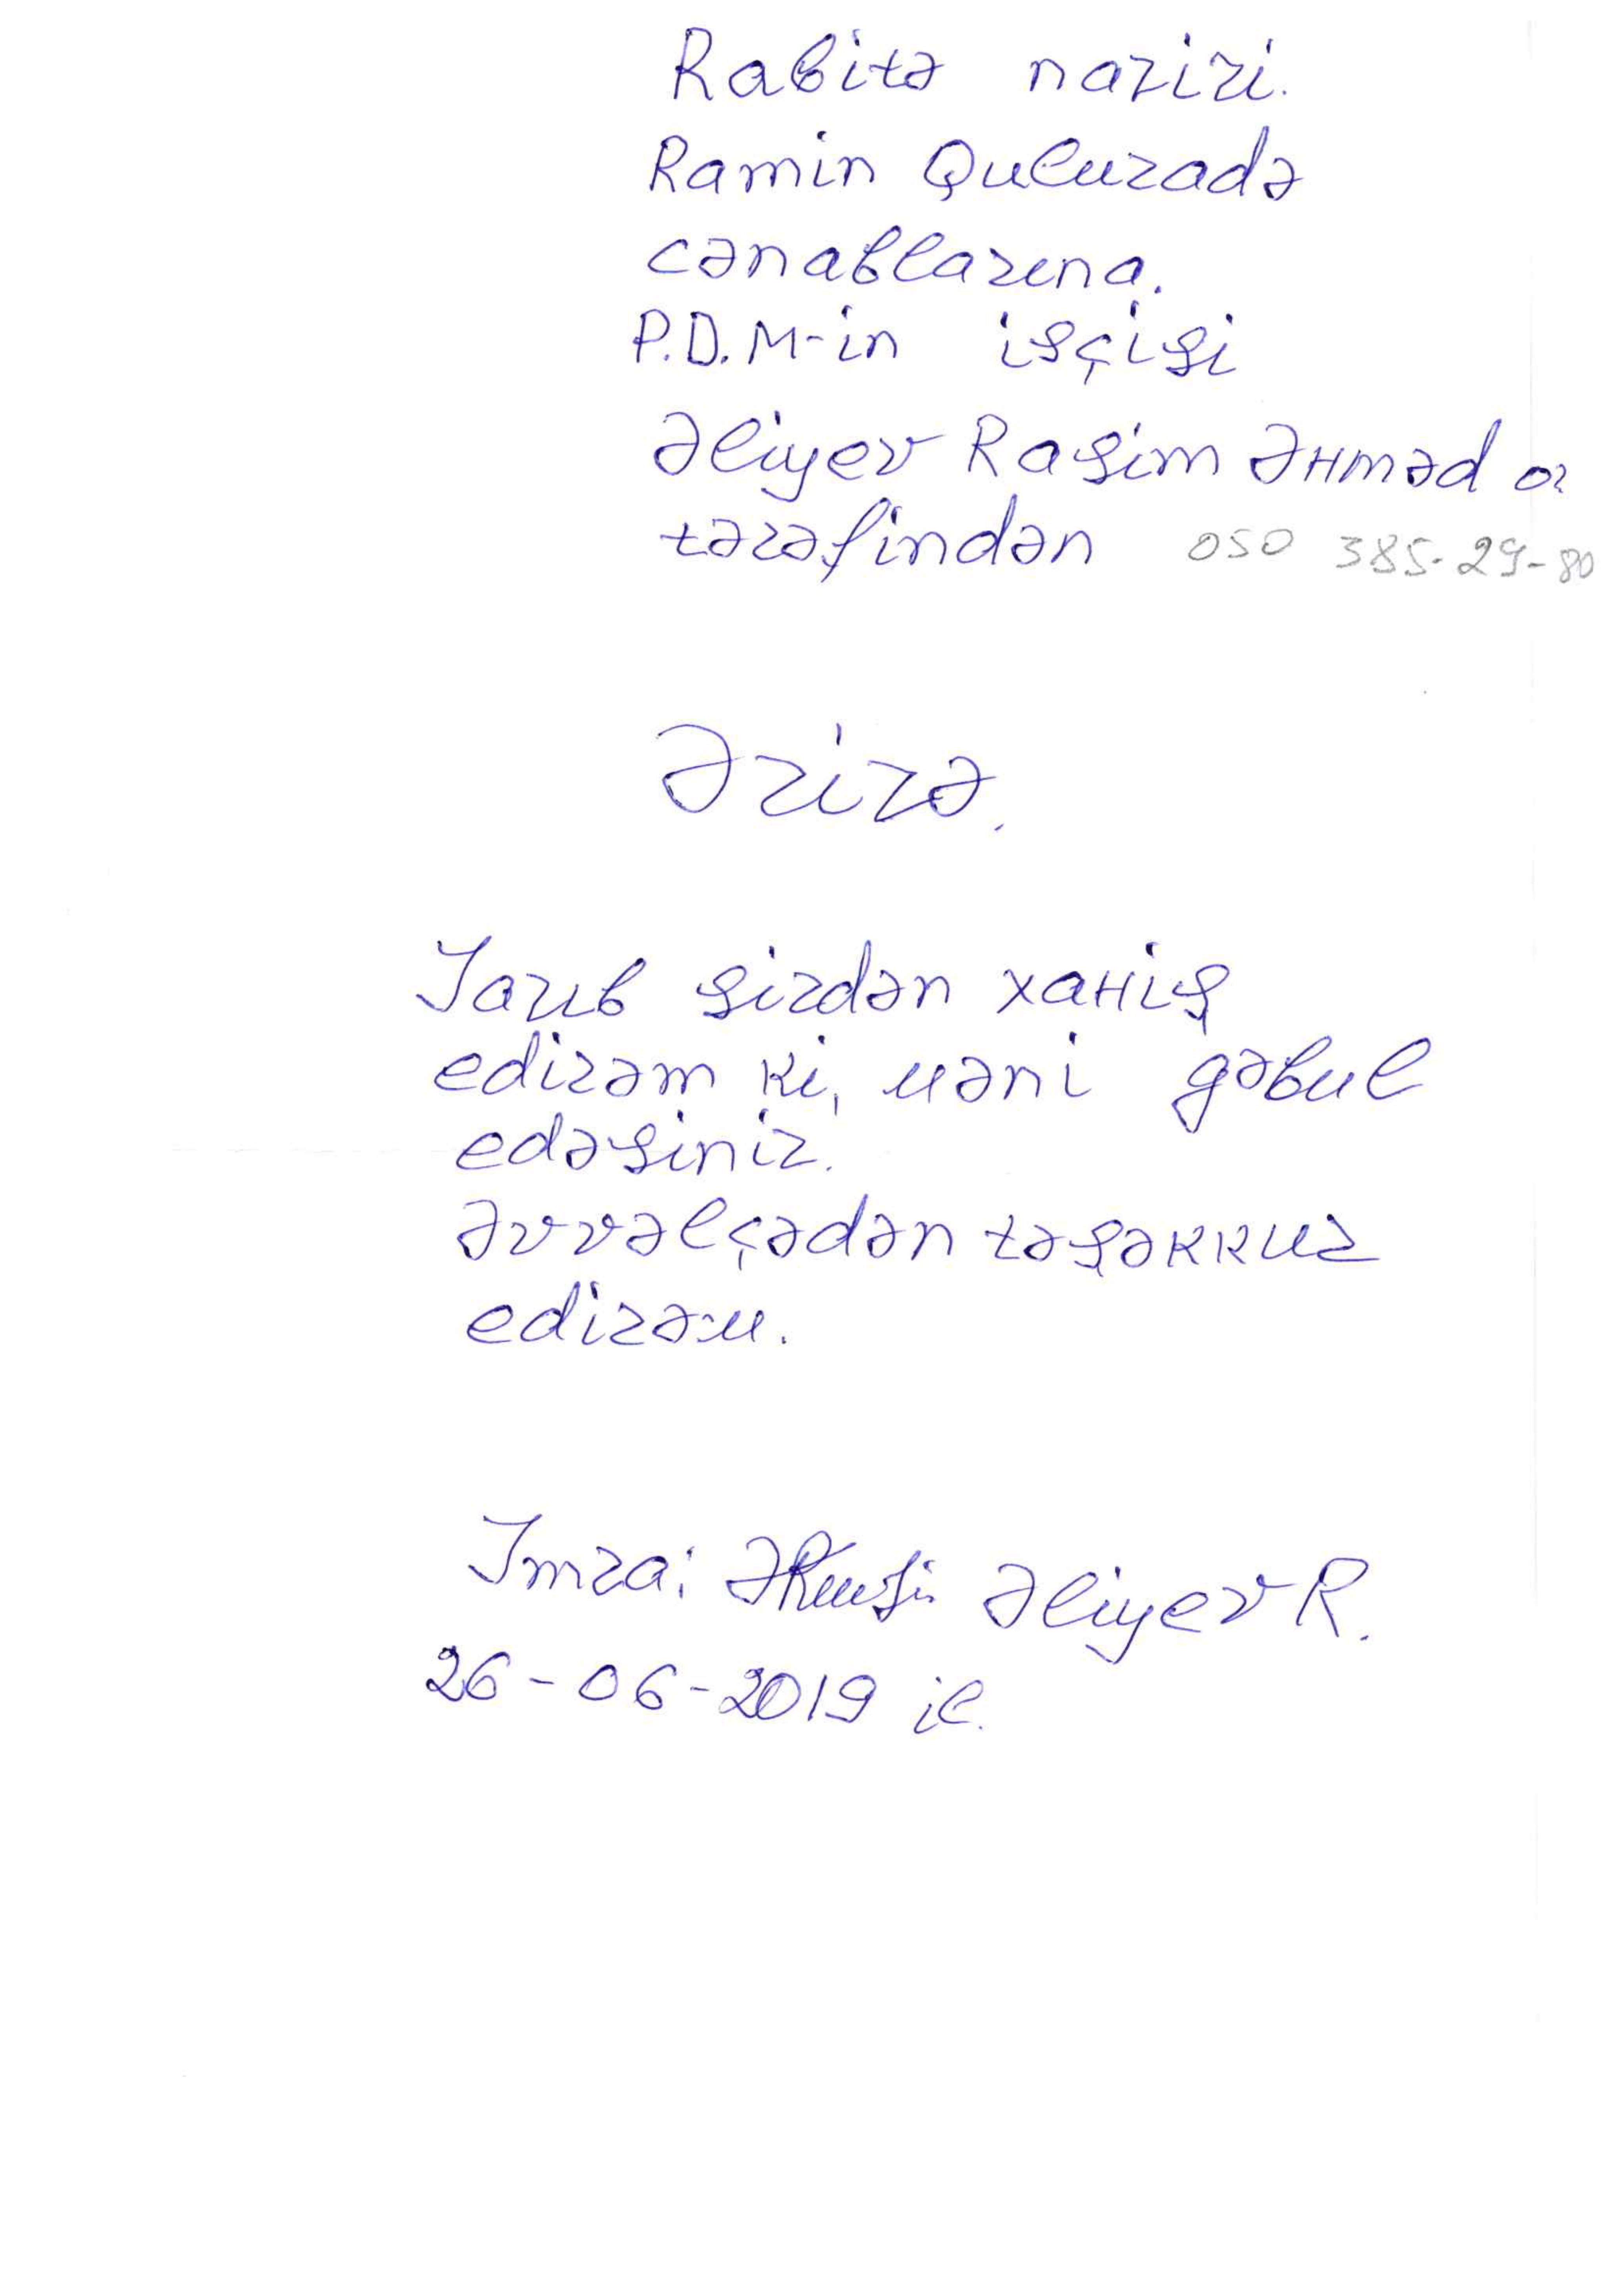 Rabitə naziri.
Ramin Quluzadə
cənablarına.
P.D.M-in isçisi
Əliyev Rasim Əhməd o.
tərəfindən 050 385-29-80
Ərizə.
Yazıb sizdən xahiş
edirəm ki, məni qəbul
edəsiniz.
Əvvəlçədən təşəkkur
edirəm.
Imza: Əliyev R.
26-06-2019 il.